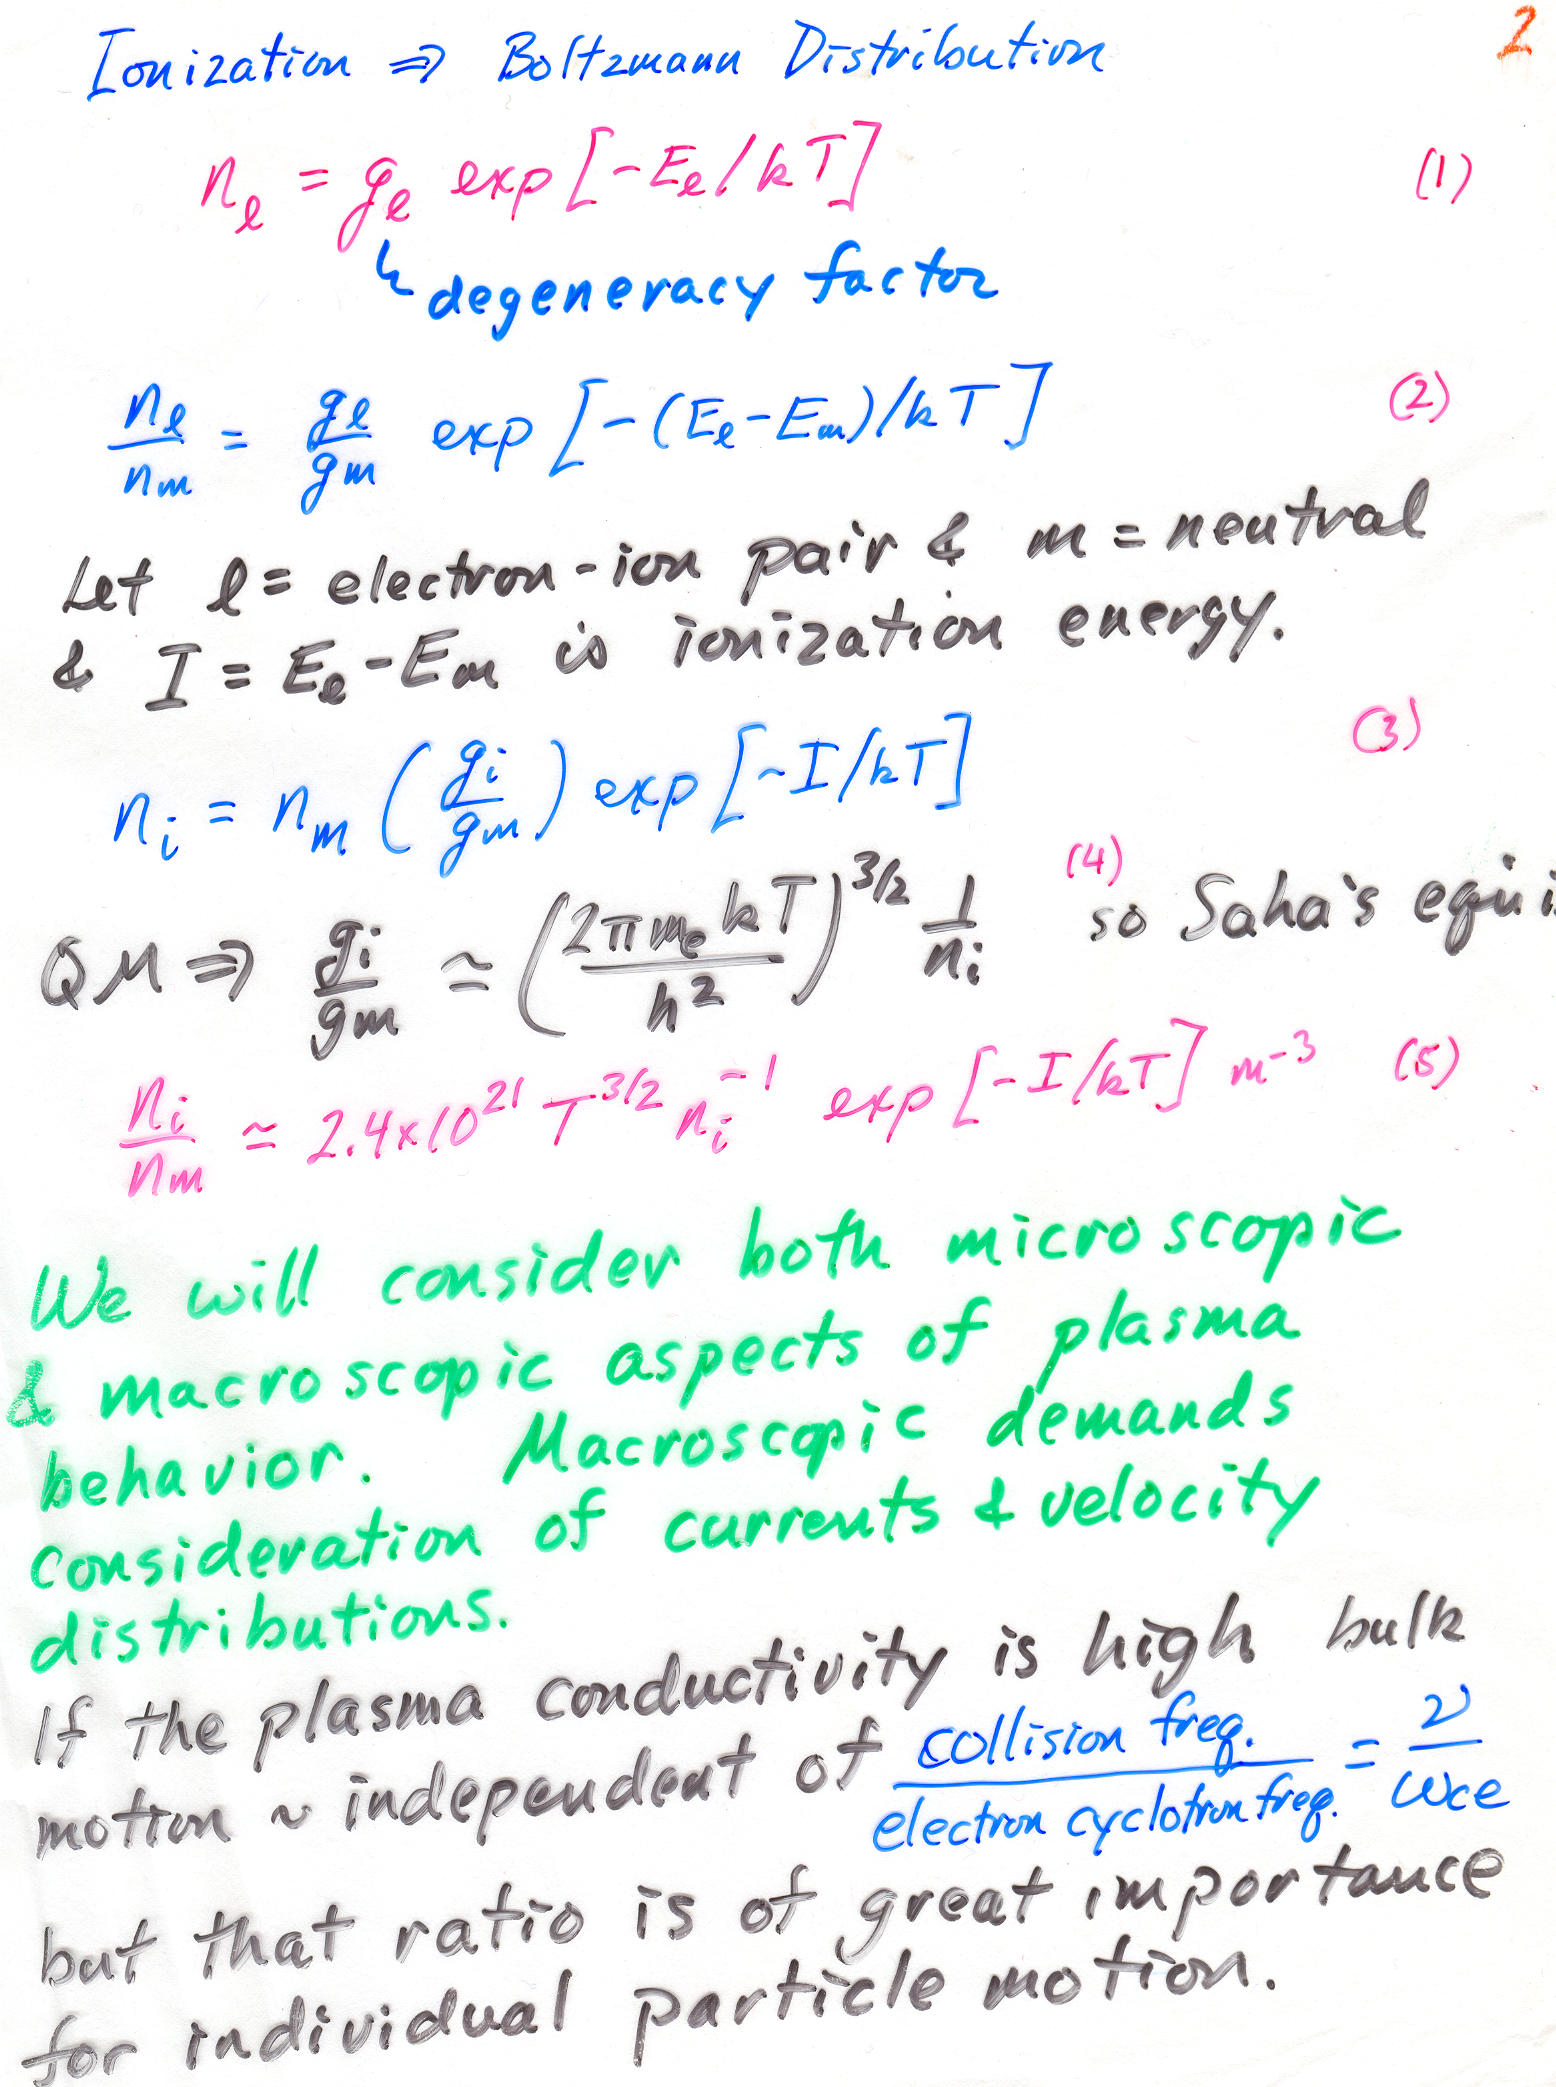 2
Ionization ⇒ Boltzmann Distribution
n_l = g_l exp[-E_l/kT] (1)
↳ degeneracy factor
n_l/n_m = g_l/g_m exp[-(E_l-E_m)/kT] (2)
Let l = electron-ion pair & m = neutral
& I = E_l-E_m is ionization energy.
n_i = n_m (g_i/g_m) exp[-I/kT] (3)
QM ⇒ g_i/g_m ≃ (2πm_e kT/h²)^3/2 1/n_i (4) so Saha's equ is
n_i/n_m ≃ 2.4×10^21 T^3/2 n_i^-1 exp[-I/kT] m^-3 (5)
We will consider both microscopic
& macroscopic aspects of plasma
behavior. Macroscopic demands
consideration of currents & velocity
distributions.
If the plasma conductivity is high bulk
motion ~ independent of collision freq./electron cyclotron freq. = ν/ω_ce
but that ratio is of great importance
for individual particle motion.